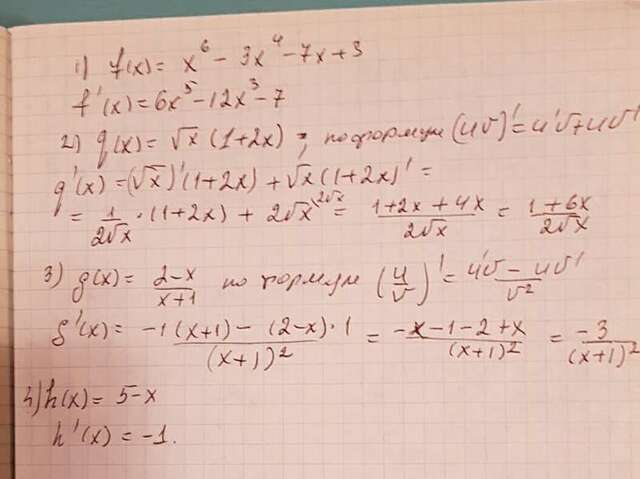 1) f(x) = x⁶ - 3x⁴ - 7x + 3
f'(x) = 6x⁵ - 12x³ - 7
2) g(x) = √x (1+2x); по формуле (uv)' = u'v + uv'
g'(x) = (√x)'(1+2x) + √x (1+2x)' =
= 1/(2√x) · (1+2x) + 2√x^(2√x) = (1+2x+4x)/(2√x) = (1+6x)/(2√x)
3) g(x) = (2-x)/(x+1) по формуле (u/v)' = (u'v - uv')/v²
g'(x) = (-1(x+1) - (2-x)·1)/(x+1)² = (-x-1-2+x)/(x+1)² = -3/(x+1)²
4) h(x) = 5-x
h'(x) = -1.